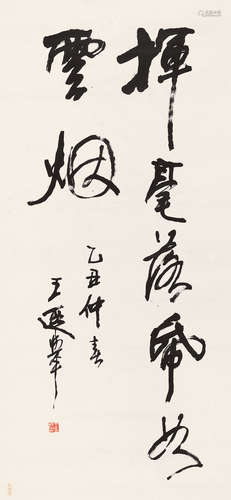 揮毫落帋如
雲烟
乙丑仲春
王遐舉